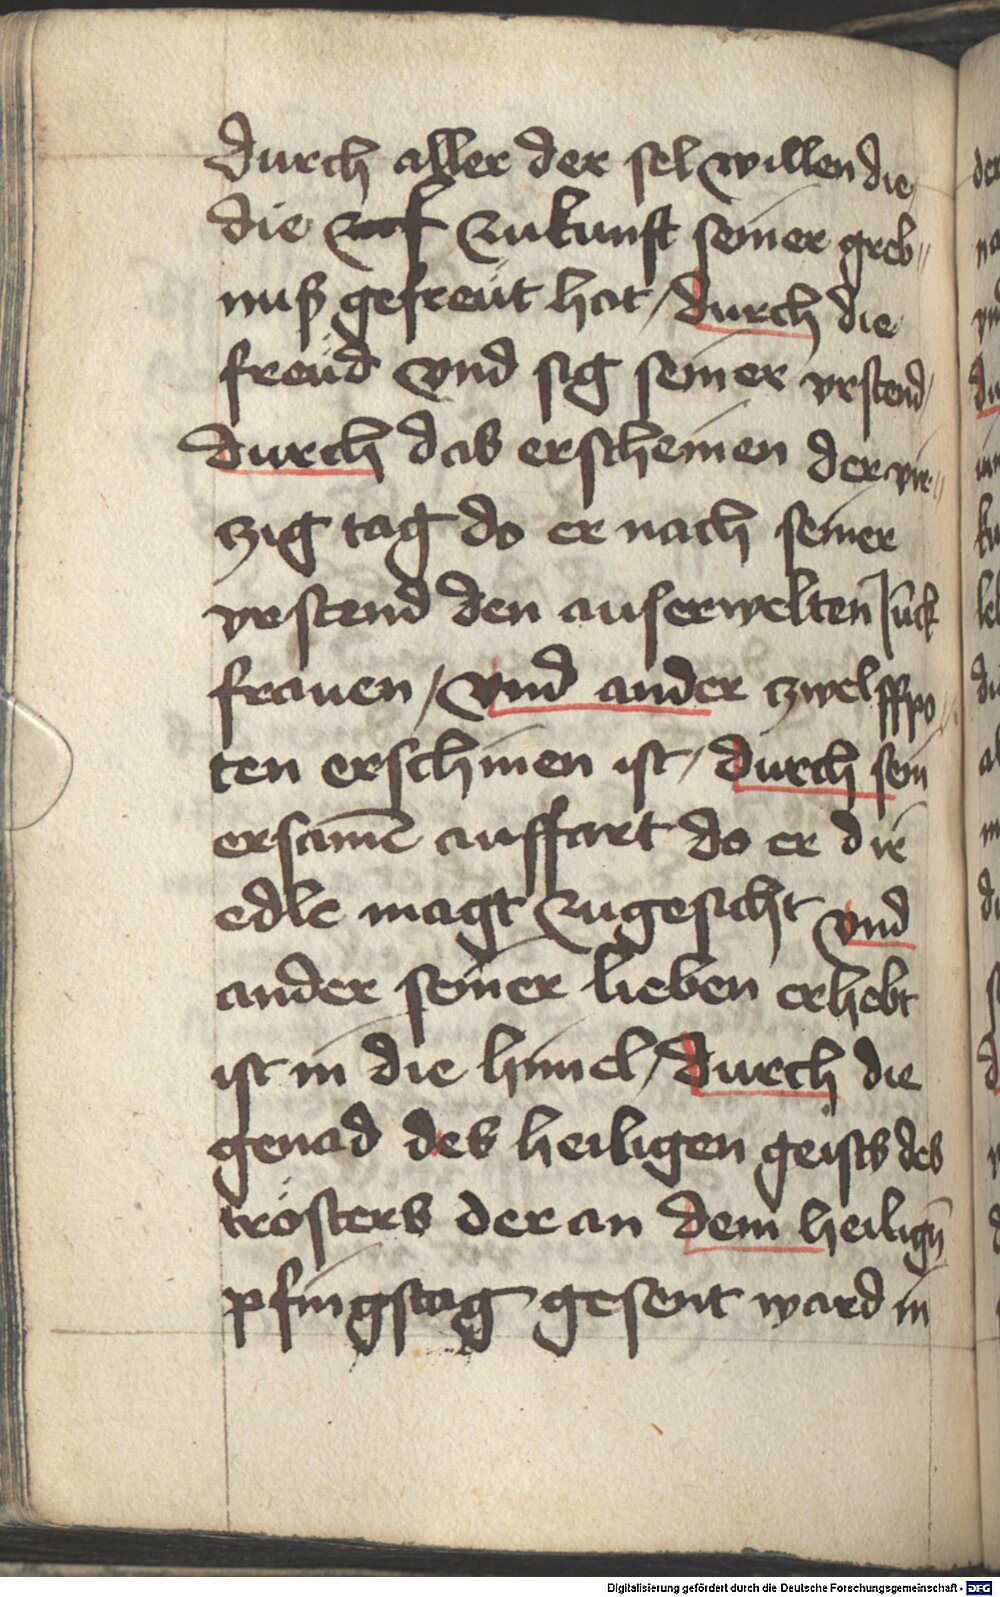 durch aller der sel willen die
die zukunft seiner greb„
nuß gefreüt hat / durch die
freüd vnd sig seiner vrstend /
durch das erscheinen der vir„
zig tag do er nach seiner
vrstend den auserwelten Jūck
frauen / vnd ander zwelffpo
ten erschinen ist / durch sein
ersamē auffart do er die
edle magt zugesicht vnd
ander seiner lieben erhebt
ist in die himel / durch die
genad des heiligen geists des
trösters der an dem heilign̄
pfingstag gesent ward in
Digitalisierung gefördert durch die Deutsche Forschungsgemeinschaft - DFG